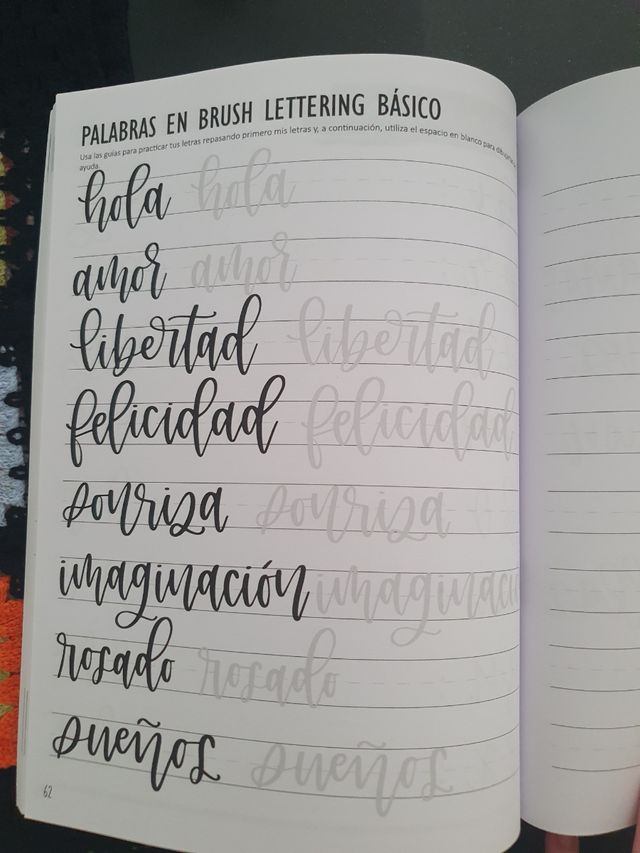 PALABRAS EN BRUSH LETTERING BÁSICO
Usa las guías para practicar tus letras repasando primero mis letras y, a continuación, utiliza el espacio en blanco para
ayuda.
hola hola
amor amor
libertad libertad
felicidad felicidad
sonrisa sonrisa
imaginación
rosado rosado
sueños sueños
62